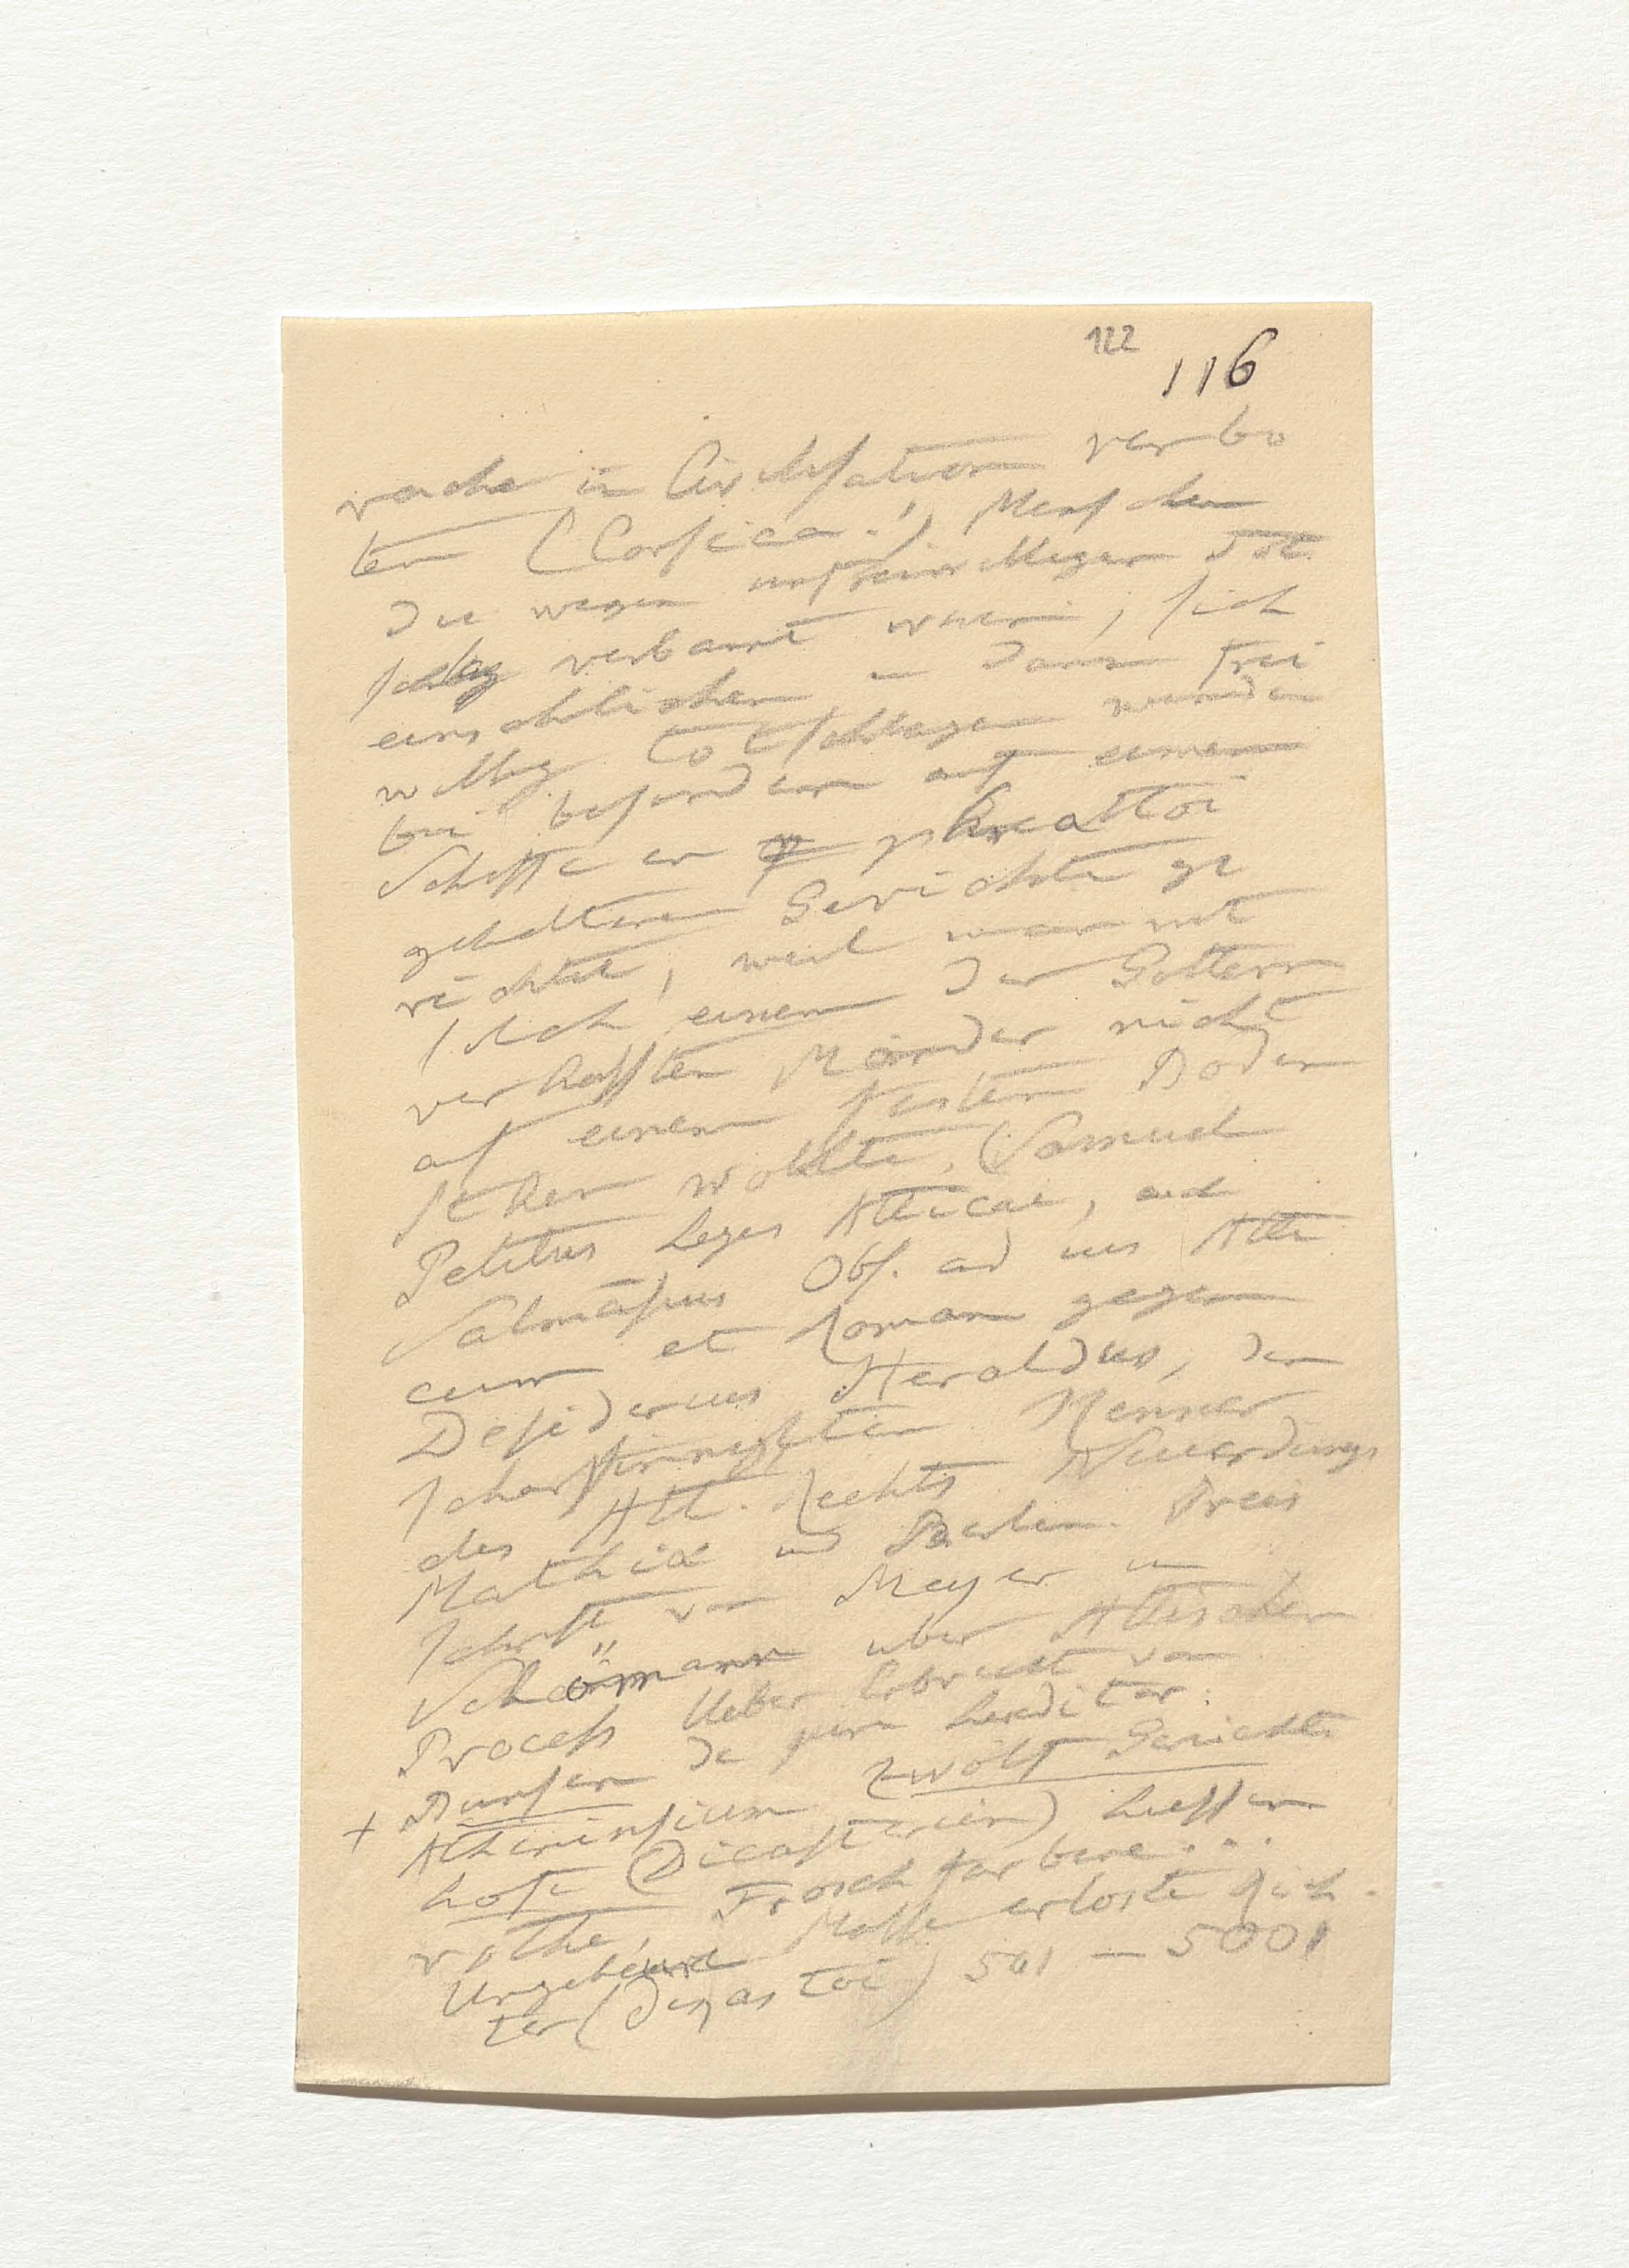 122
116
rache in Civilisation verbo
ten (Corsica.). Menschen
die wegen unfreiwilligen Tot
schlag verbannt waren, sich
einschlichen u dann frei
willig totschlagen wurden
bei besondern auf einem
Schiffe en phreattoi
gehaltenen Gerichte ge
richtet, weil man mit
solch einem den Gottern
verhassten Mörder nicht
auf einem festen Boden
stehen wollte. (Samuel
Petitus Leges Atticae, und
Salmasius Obs. ad ius Atti
cum et Roman gegen
Desiderius Heraldus, den
scharfsinnigsten Kenner
des Att. Rechts. Neuerdings
Matthiä und Berlin. Preis
schrift von Meyer u
Schömann uber Attischen
Process Ueber Erbrecht von
Bunsen de jure hereditar.
+ Atheniensium zwölf Gerichts
höfe (Dicasterien) hiessen
rothe, Froschfarbene...
Ungeheure Masse erloste Rich
ter (Dicastoi) 501 — 5001